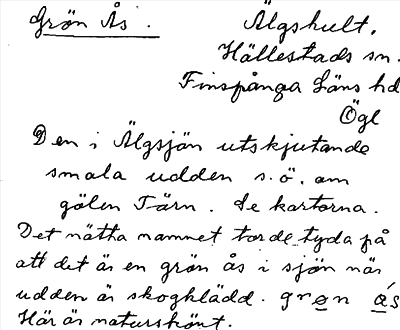 Grön Ås. Älgshult.
Hällestads sn.
Finspånga Läns hd
Ögl
Den i Älgsjön utskjutande
smala udden s.ö. om
gölen Tärn. Se kartorna.
Det nätta namnet torde tyda på
att det är en grön ås i sjön när
udden är skogklädd. grøn ás
Här är naturskönt.